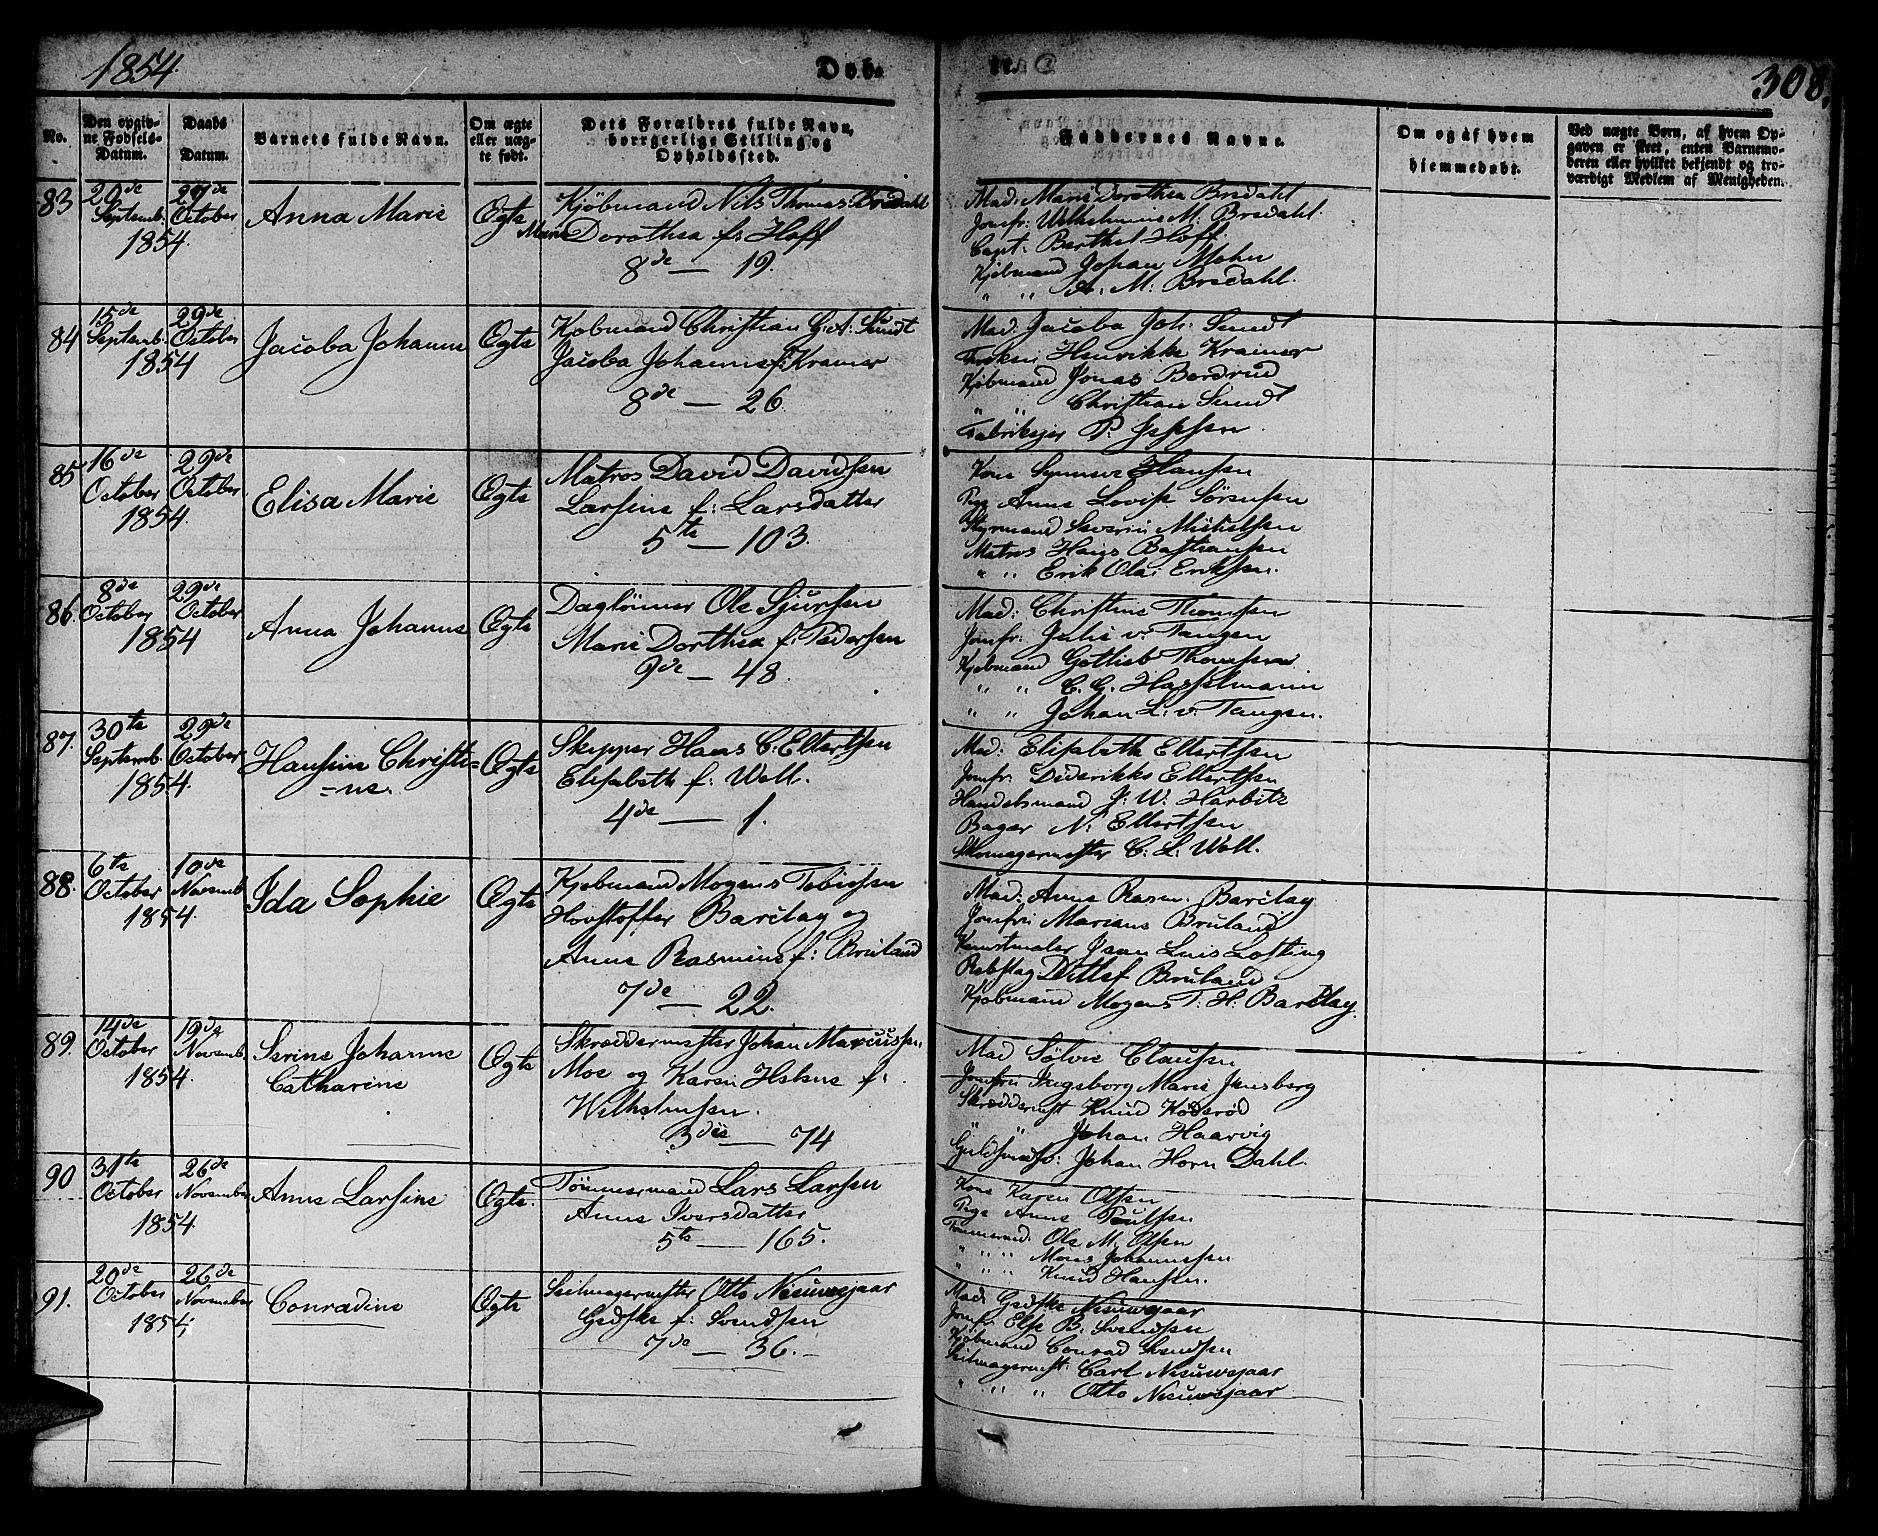 1854.
Døb-
te.
308.
No.
Den opgiv-
ne Fødsels-
Datum.
Daabs
Datum.
Barnets fulde Navn.
Om ægte
eller uæg-
te født.
Dets Forældres fulde Navn,
borgerlige Stilling og
Opholdssted.
Faddernes Navne.
Om og af hvem
hjemmedøbt.
Ved uægte Børn, af hvem Op-
gaven er skeet, enten Barnemo-
deren eller hvilket bekjendt og tro-
værdigt Medlem af Menigheden.
83
20de
Septemb.
1854.
29de
October
Anna Marie
Ægte
Kjöbmand Nils Thomas Bredahl
Marie Dorothea f: Hoff
8de — 19.
Mad: Marie Dorothea Bredahl
Jomfr: Wilhelmine M. Bredahl.
Capt: Berthel Hoff.
Kjöbmand Johan Mohn
" " A. M. Bredahl.
84
15de
Septemb.
1854
29de
October
Jacoba Johanne
Ægte
Kobmand Christian G. A. Sundt
Jacoba Johanne f: Kramer
8de — 26.
Mad: Jacoba Joh. Sundt
Henrikke Kramer
Kjöbmand Jonas Bordrud
" " Christian Sundt
P. Jessen.
85
16de
October
1854.
29de
October.
Elisa Marie
Ægte
Matros David Davidsen
Larsine f: Larsdatter
5te — 103.
Kone Synneve Hansen
Pige Anne Lovise Sörensen
Styrmand Severin Mikkelsen
Matros Hans Bastiansen
" " Erik Olai Eriksen.
86.
8de
October
1854
29de
October
Anna Johanne
Ægte
Daglönner Ole Sjursen
Marie Dorthea f: Pedersen
9de — 48.
Mad: Christine Thomsen
Jomfr: Julie v. Tangen
Kjöbmand Gotlieb Thomsen
" " C. G. Hasselmann
" " Johan L. v. Tangen.
87.
30te
Septemb.
1854.
29de
October
Hansine Christi=
=ne.
Ægte
Skipper Hans C. Ellertsen
Elisabeth f: Woll.
4de — 1.
Mad: Elisabeth Ellertsen
Jomfr: Diderikke Ellertsen
Handelsmand J. W. Harbitz
Bager N. Ellertsen
Skomagermester C. L. Woll.
88.
6te
October
1854.
10de
Novemb.
Ida Sophie
Ægte
Kjöbmand Mogens Tobiesen
Hovstoffer Barclay og
Anne Rasmine f: Bruland
7de — 22.
Mad: Anne Rasm. Barclay
Jomfru Mariane Bruland
Kunstmaler Jean Luis Losting
Rebslag Ditlef Bruland
Kjöbmand Mogens T. H. Barclay.
89.
14de
October
1854.
19de
Novemb.
Serine Johanne
Catharine
Ægte
Skræddermester Johan Marcussen
Moe og Karen Helene f:
Wilhelmsen.
3die — 74
Mad Sölvie Clausen
Jomfru Ingeborg Marie Jensberg
Skræddermst Knud Köderöd
Johan Haarvig
Guldsmedsv: Johan Horn Dahl.
90
31te
October
1854.
26de
November
Anne Larsine
Ægte.
Tömmermand Lars Larsen
Anne Iversdatter
5te — 165.
Kone Karen Olsen
Pige Anne Poulsen
Tömmermd. Ole M. Olsen
" " " Mons Johannessen
" " " Knud Hansen.
91.
20de
October
1854,
26de
November
Conradine
Ægte
Seilmagermester Otto Nieuwejaar
Gedske f: Svendsen
7de — 36.—
Mad: Gedske Nieuwejaar
Jomfr: Else B. Svendsen
Kjöbmand Conrad Svendsen
Seilmagermst: Carl Nieuwejaar
" " " Otto Nieuwejaar